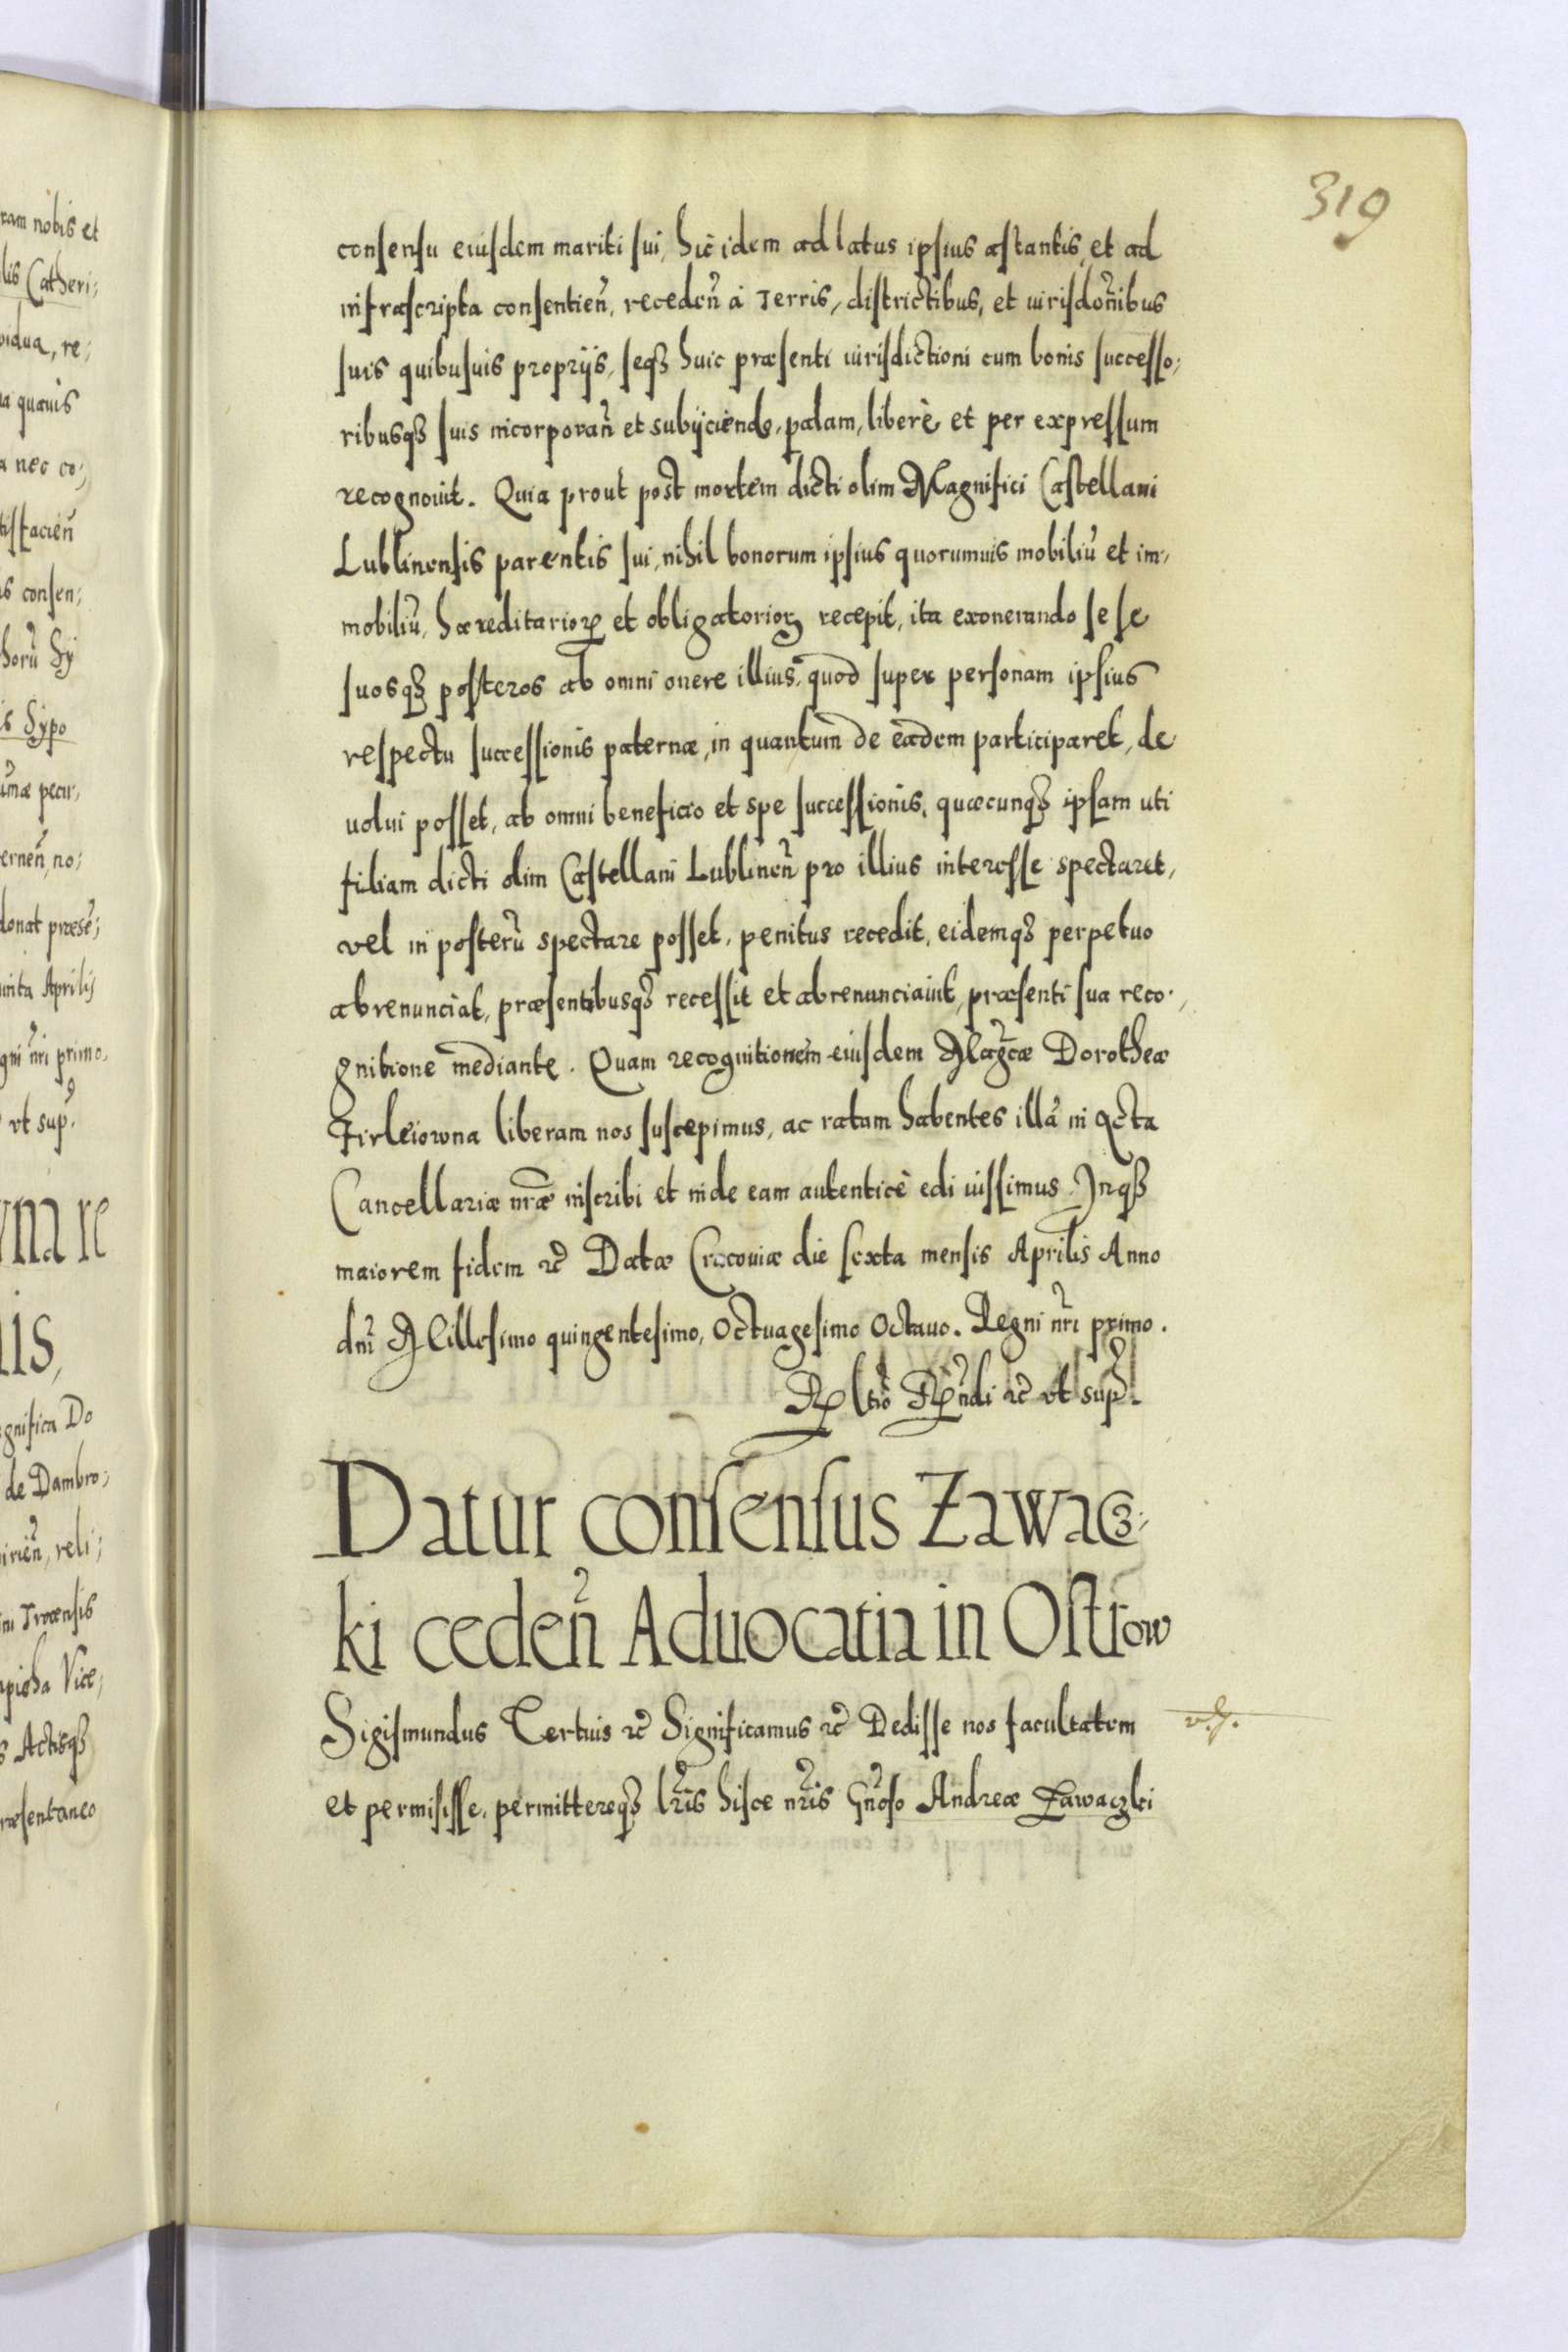 319
consensu eiusdem mariti sui, hic idem ad latus ipsius astantis, et ad
infrascripta consentieñ, recedeñ à Terris, districtibus, et iurisdonibus
suis quibusuis proprijs, seqȝ huic præsenti iurisdictioni cum bonis successo,
ribusqȝ suis incorporañ et subijciendo, palam, liberè et per expressum
recognouit. Quia prout post mortem dicti olim Magnifici Castellani
Lublinensis parentis sui, nihil bonorum ipsius quorumuis mobiliũ et im,
mobiliũ, hæreditarioꝝ et obligatorioꝝ recepit, ita exonerando se se
suosqȝ posteros ab omni onere illius, quod super personam ipsius
respectu successionis paternæ, in quantum de eadem participaret, de
uolui posset, ab omni beneficio et spe successionis, quæcunqȝ ipsam uti
filiam dicti olim Castellani Lublineñ pro illius interesse spectaret,
vel in posterũ spectare posset, penitus recedit, eidemqȝ perpetuo
abrenunciat, præsentibusqȝ recessit et abrenunciauit, præsenti sua reco,
gnitione mediante. Quam recognitionem eiusdem Magcæ Dorotheæ
Firleiowna liberam nos suscepimus, ac ratam habentes illã in Acta
Cancellariæ nræ inscribi et inde eam autenticè edi iussimus. Inqȝ
maiorem fidem &c Datæ Cracouiæ die sexta mensis Aprilis Anno
dni Millesimo quingentesimo, Octuagesimo Octauo. Regni nri primo.
Rltio Rndi &c vt sup.
Datur consensus Zawacz,
ki cedeñ Aduocatia in Ostrow
Sigismundus Tertius &c Significamus &c Dedisse nos facultatem
et permisisse, permittereqȝ lris hisce nris Gnoso Andreæ Zawaczki